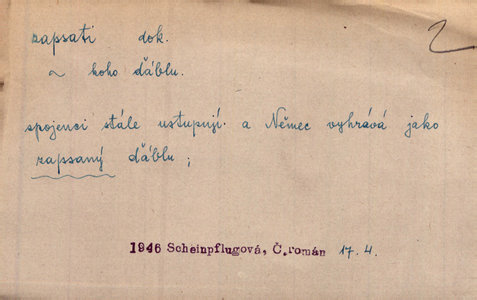 zapsati dok.
2
~ koho ďáblu.
spojenci stále ustupují. a Němec vyhrává jako
zapsaný ďáblu;
1946 Scheinpflugová, Č.román 17.4.